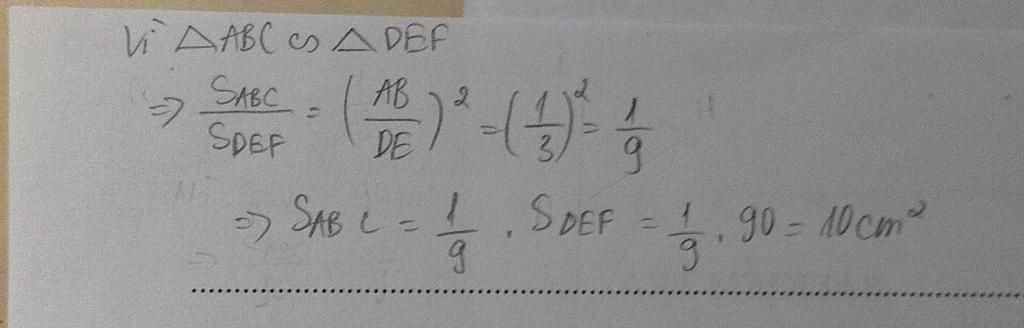 Vì △ABC ∽ △DEF
=> S_ABC / S_DEF = (AB / DE)² = (1/3)² = 1/9
=> S_ABC = 1/9 . S_DEF = 1/9 . 90 = 10cm²